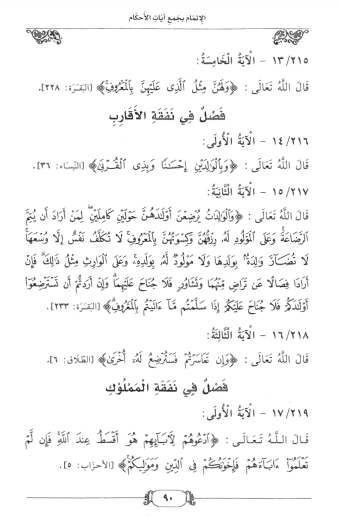 الإلمام بجمع آيات الأحكام
١٣/٢١٥ - الآيَةُ الْخَامِسَةُ:
قَالَ اللَّهُ تَعَالَى: ﴿وَلَهُنَّ مِثْلُ الَّذِي عَلَيْهِنَّ بِالْمَعْرُوفِ﴾ [البَقَرَة: ٢٢٨].
فَصْلٌ فِي نَفَقَةِ الأَقَارِبِ
١٤/٢١٦ - الآيَةُ الأُولَى:
قَالَ اللَّهُ تَعَالَى: ﴿وَبِالْوَالِدَيْنِ إِحْسَانًا وَبِذِي الْقُرْبَى﴾ [النِّسَاء: ٣٦].
١٥/٢١٧ - الآيَةُ الثَّانِيَةُ:
قَالَ اللَّهُ تَعَالَى: ﴿وَالْوَالِدَاتُ يُرْضِعْنَ أَوْلَادَهُنَّ حَوْلَيْنِ كَامِلَيْنِ لِمَنْ أَرَادَ أَن يُتِمَّ
الرَّضَاعَةَ وَعَلَى الْمَوْلُودِ لَهُ رِزْقُهُنَّ وَكِسْوَتُهُنَّ بِالْمَعْرُوفِ لَا تُكَلَّفُ نَفْسٌ إِلَّا وُسْعَهَا
لَا تُضَارَّ وَالِدَةٌ بِوَلَدِهَا وَلَا مَوْلُودٌ لَّهُ بِوَلَدِهِ وَعَلَى الْوَارِثِ مِثْلُ ذَلِكَ فَإِنْ
أَرَادَا فِصَالًا عَن تَرَاضٍ مِّنْهُمَا وَتَشَاوُرٍ فَلَا جُنَاحَ عَلَيْهِمَا وَإِنْ أَرَدتُّمْ أَن تَسْتَرْضِعُوا
أَوْلَادَكُمْ فَلَا جُنَاحَ عَلَيْكُمْ إِذَا سَلَّمْتُم مَّا آتَيْتُم بِالْمَعْرُوفِ﴾ [البَقَرَة: ٢٣٣].
١٦/٢١٨ - الآيَةُ الثَّالِثَةُ:
قَالَ اللَّهُ تَعَالَى: ﴿وَإِن تَعَاسَرْتُمْ فَسَتُرْضِعُ لَهُ أُخْرَى﴾ [الطَّلَاق: ٦].
فَصْلٌ فِي نَفَقَةِ الْمَمْلُوكِ
١٧/٢١٩ - الآيَةُ الأُولَى:
قَالَ اللَّهُ تَعَالَى: ﴿ادْعُوهُمْ لِآبَائِهِمْ هُوَ أَقْسَطُ عِندَ اللَّهِ فَإِن لَّمْ
تَعْلَمُوا آبَاءَهُمْ فَإِخْوَانُكُمْ فِي الدِّينِ وَمَوَالِيكُمْ﴾ [الأحزَاب: ٥].
٩٠